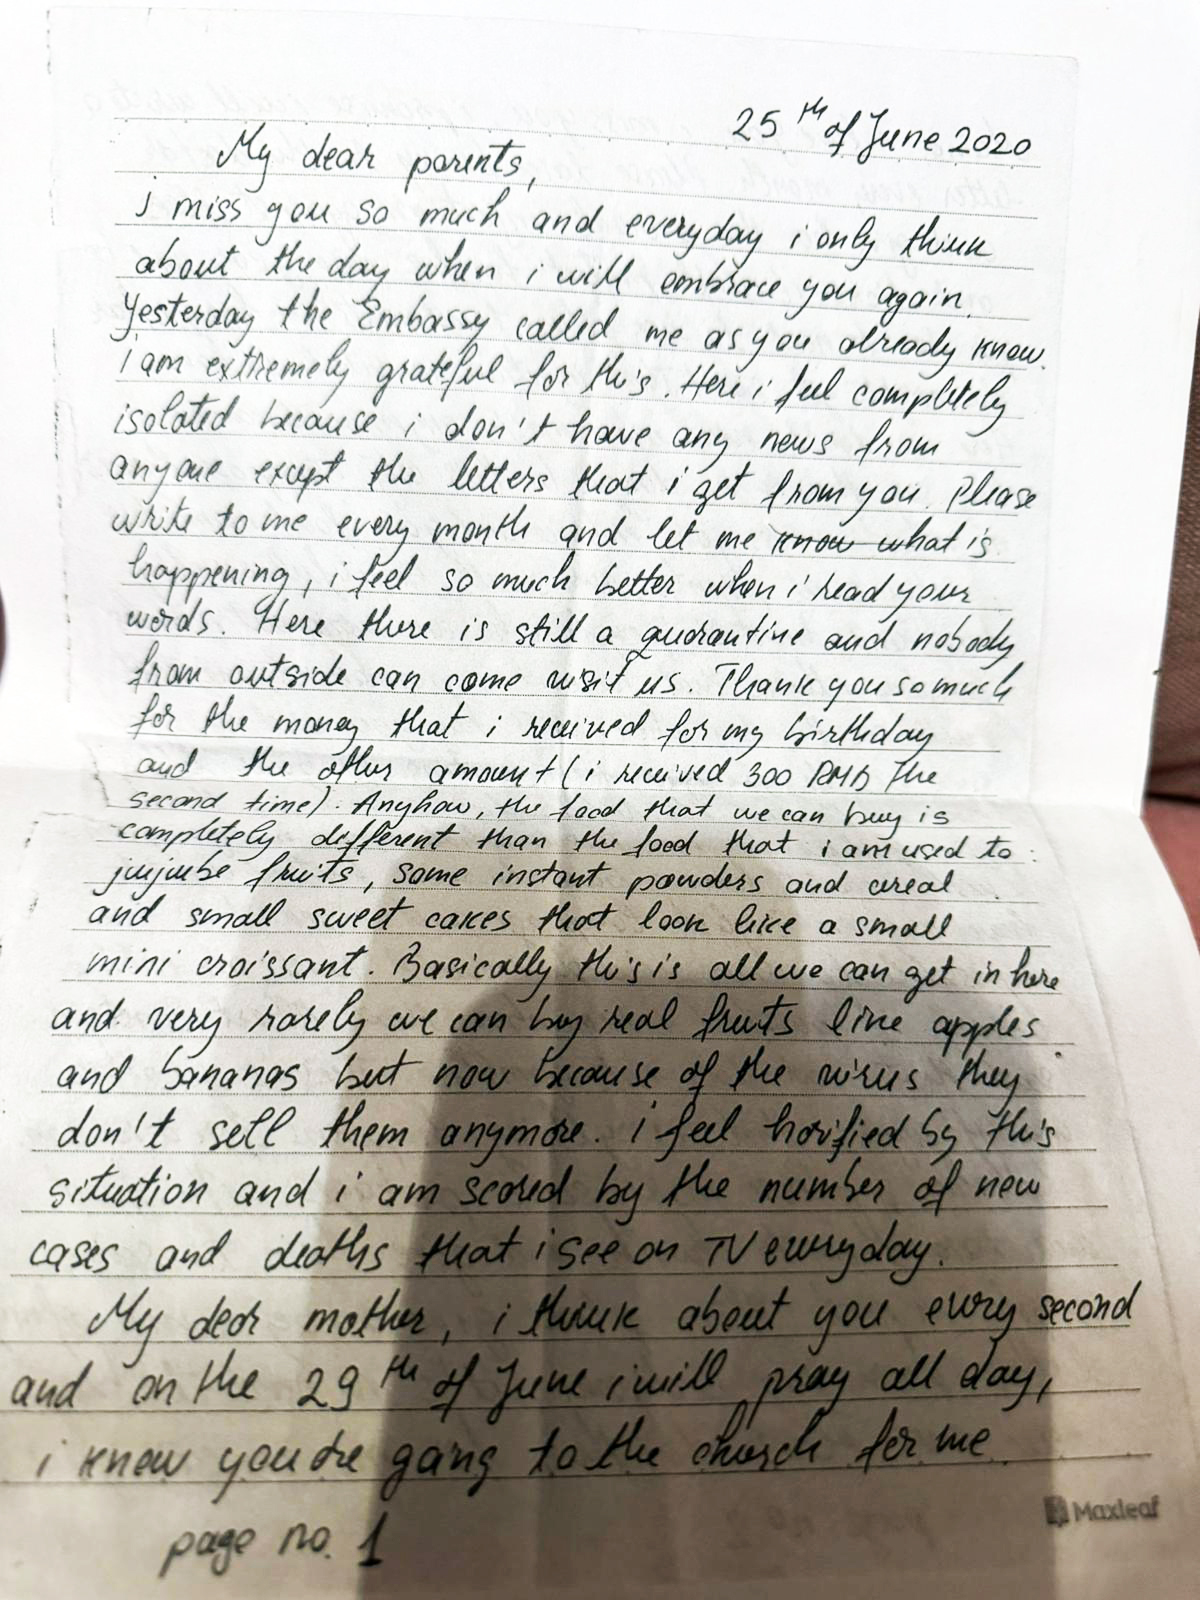 25th of June 2020
My dear parents,
i miss you so much and everyday i only think
about the day when i will embrace you again.
Yesterday the Embassy called me as you already know.
i am extremely grateful for this. Here i feel completely
isolated because i don't have any news from
anyone except the letters that i get from you. Please
write to me every month and let me know what is
happening, i feel so much better when i read your
words. Here there is still a quarantine and nobody
from outside can come visit us. Thank you so much
for the money that i received for my birthday
and the other amount (i received 300 RMB the
second time). Anyhow, the food that we can buy is
completely different than the food that i am used to:
jujube fruits, some instant powders and cereal
and small sweet cakes that look like a small
mini croissant. Basically this is all we can get in here
and very rarely we can buy real fruits like apples
and bananas but now because of the virus they
don't sell them anymore. i feel horified by this
situation and i am scared by the number of new
cases and deaths that i see on TV everyday.
My dear mother, i think about you every second
and on the 29th of June i will pray all day,
i know you're going to the church for me
page no. 1
Maxleaf